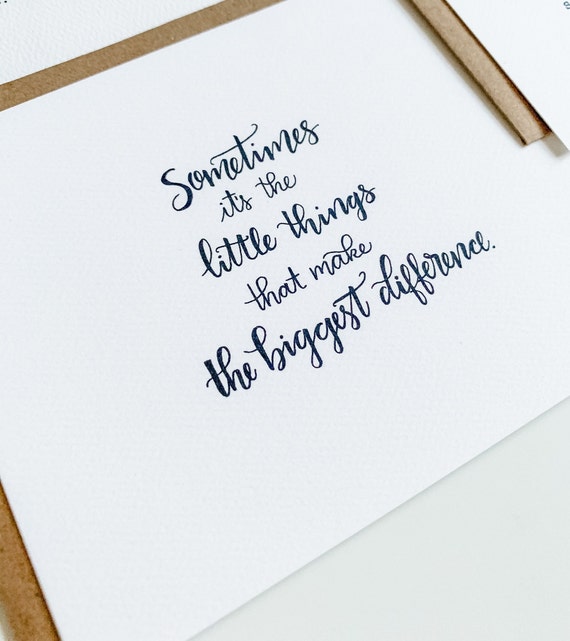 Sometimes
it's the
little things
that make
the biggest difference.